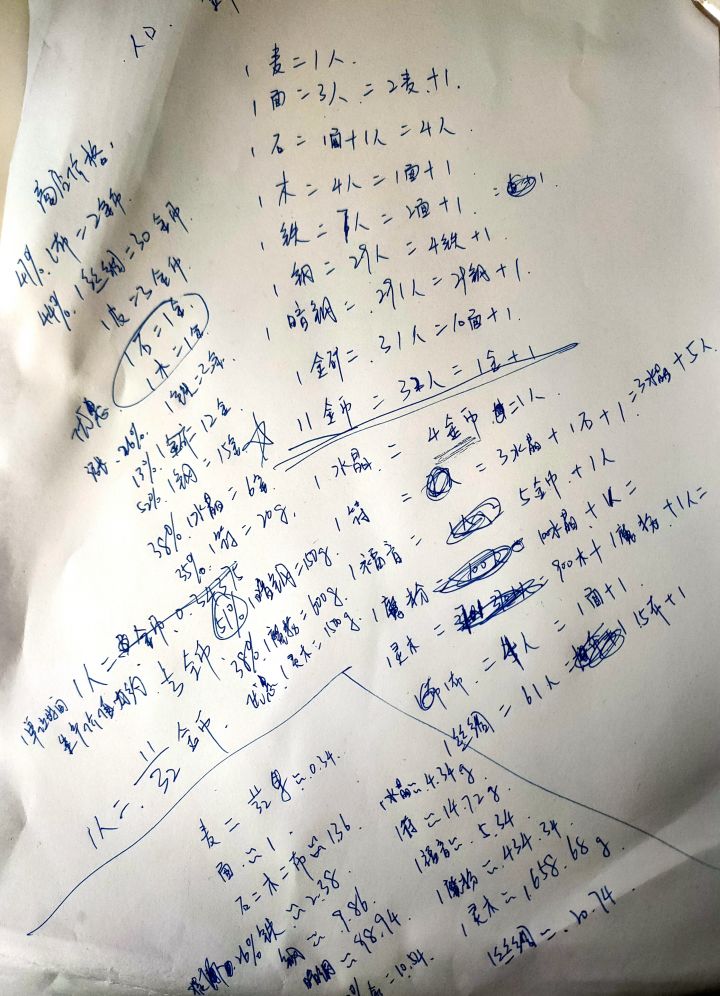 人口.
1麦=1人.
1面=3人=2麦+1.
1石=1面+1人=4人
1木=4人=1面+1
1铁=7人=2面+1.
1钢=29人=4铁+1
1暗钢=291人=2钢+1.
1金矿=31人=10面+1.
11金币=32人=1金+1
1水晶=4金币=1人
1符=3水晶+1石+1=3水晶+5人
1福音=5金币+1人
1魔粉=100水晶+1人=
1灵木=900木+1魔粉+1人=
1布=4人=1面+1
1丝绸=61人 15布+1
商店价格.
47%.1布=2金币.
44%.1丝绸=30金币
1皮=3金币
1石=1金.
1木=1金
优惠
26%.1铁=2金.
13%.1金矿=12金
52%.1钢=15金
38%.1水晶=6金
35%.1符=20g.
51%.1暗钢=150g.
38%.1魔粉=600g.
优惠.1灵木=1500g.
1单位时间
1人=
11/32金币.
1人=
麦=11/32≈0.34.
面≈1.
石=木=布≈1.36
26%铁≈2.38.
钢≈9.86
暗钢≈98.94
金≈10.54.
1水晶≈4.34g
1符≈14.72g
1福音≈5.34
1魔粉≈434.34
1灵木≈1658.68g
1丝绸≈20.74